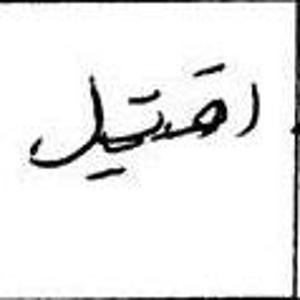 اقتيل